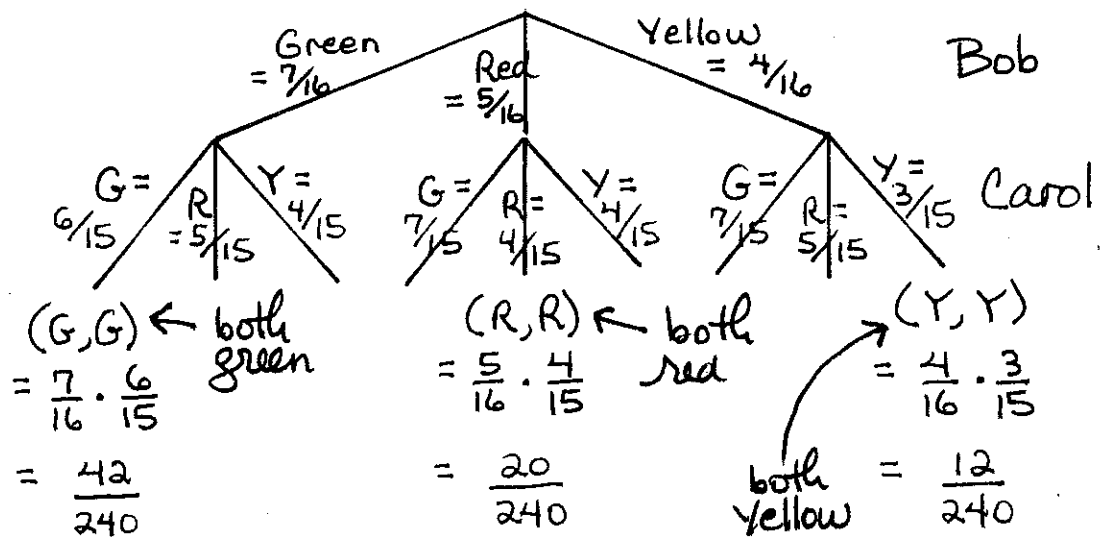 Green = 7/16
Red = 5/16
Yellow = 4/16
Bob
G = 6/15
R = 5/15
Y = 4/15
G = 7/15
R = 4/15
Y = 4/15
G = 7/15
R = 5/15
Y = 3/15
Carol
(G,G) ← both green
= 7/16 · 6/15
= 42/240
(R,R) ← both red
= 5/16 · 4/15
= 20/240
(Y,Y)
both yellow
= 4/16 · 3/15
= 12/240